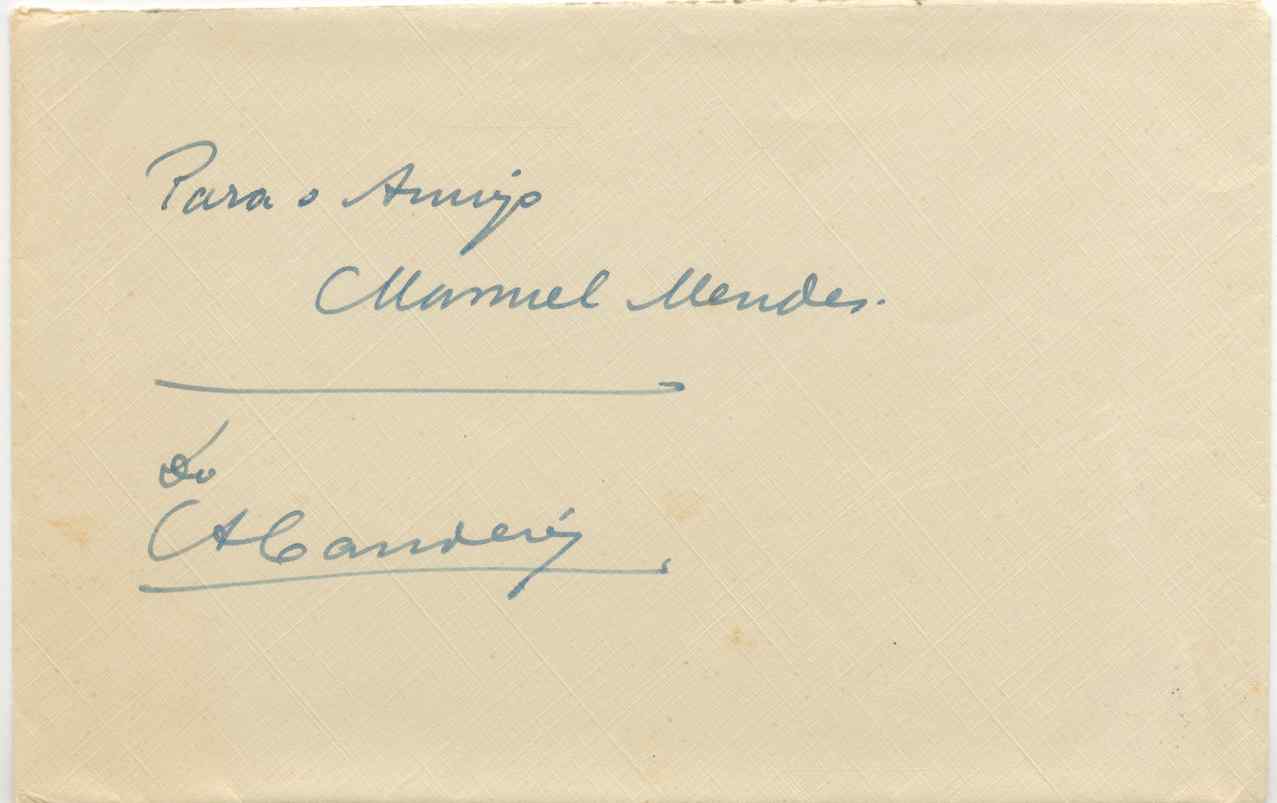 Para o Amigo
Manuel Mendes.
Do